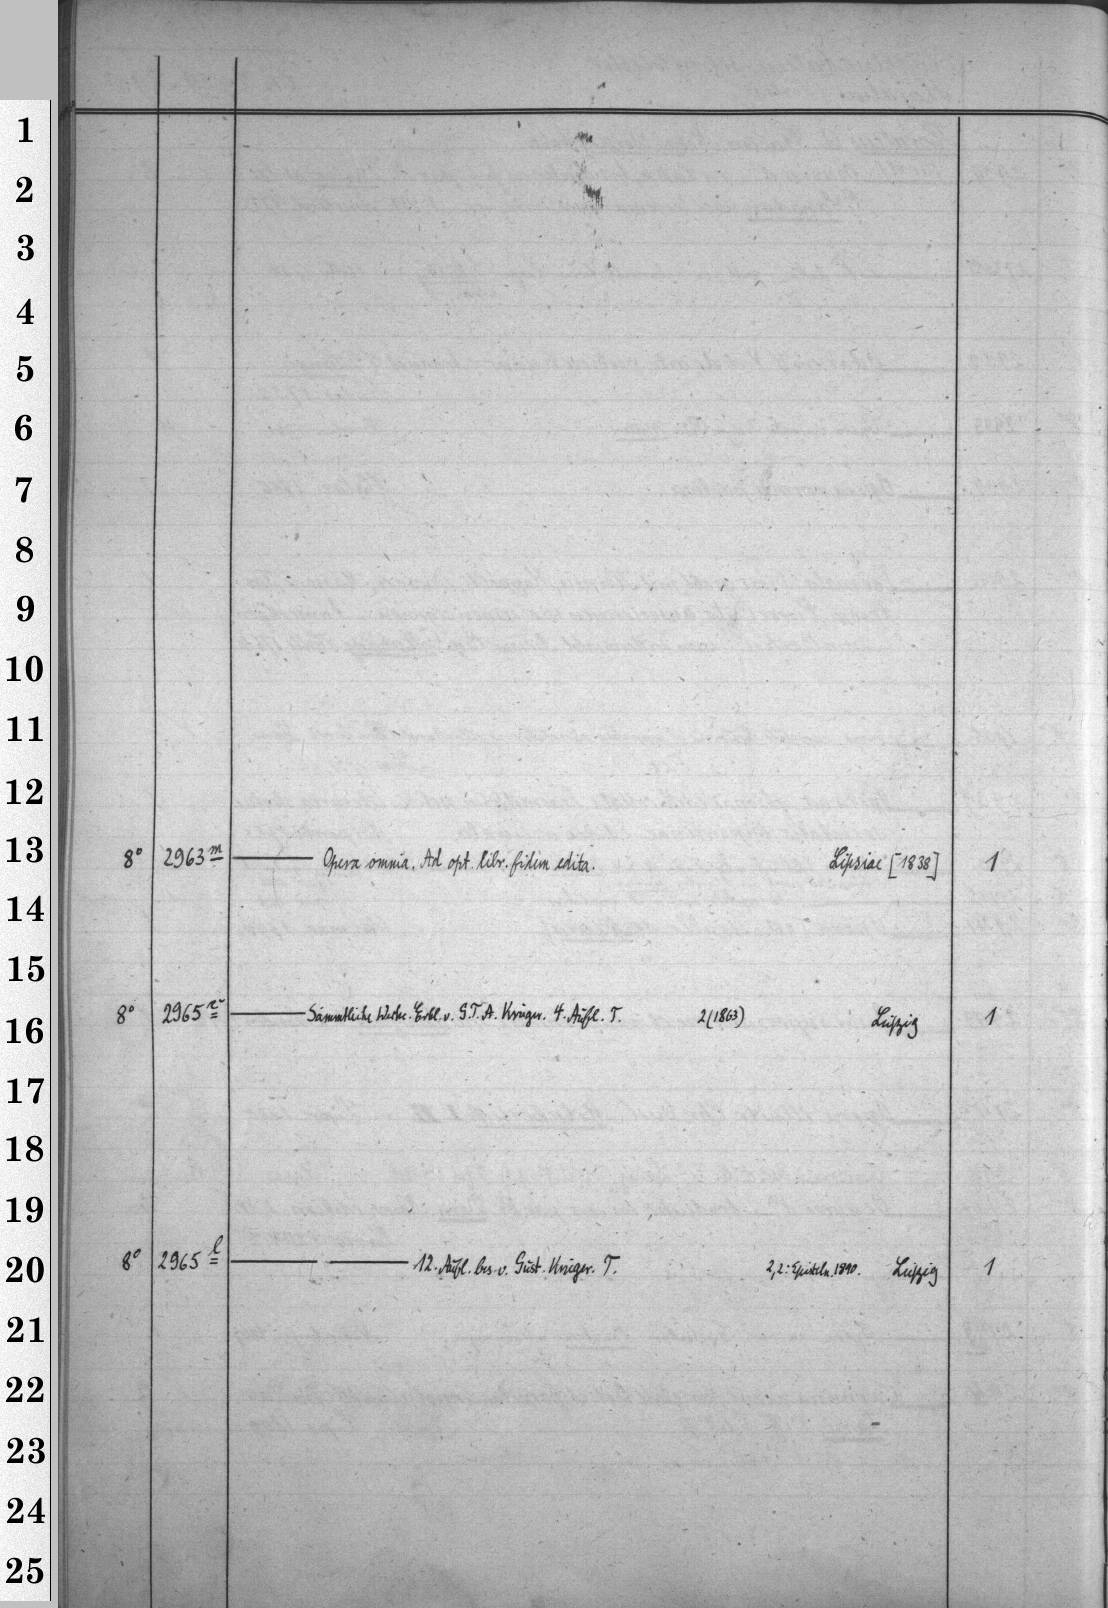 1
2
3
4
5
6
7
8
9
10
11
12
13
8° 2963 m Opera omnia. Ad opt. libr. fidem edita. Lipsiae [1838] 1
14
15
16
8° 2965 Sämmtliche Werke. Erkl. v. G. T. A. Krüger. 4. Aufl. T. 2(1863) Leipzig 1
17
18
19
20
8° 2965 l 12. Aufl. bes. v. Gust. Krüger. T. 2,2: Episteln. 1890. Leipzig 1
21
22
23
24
25